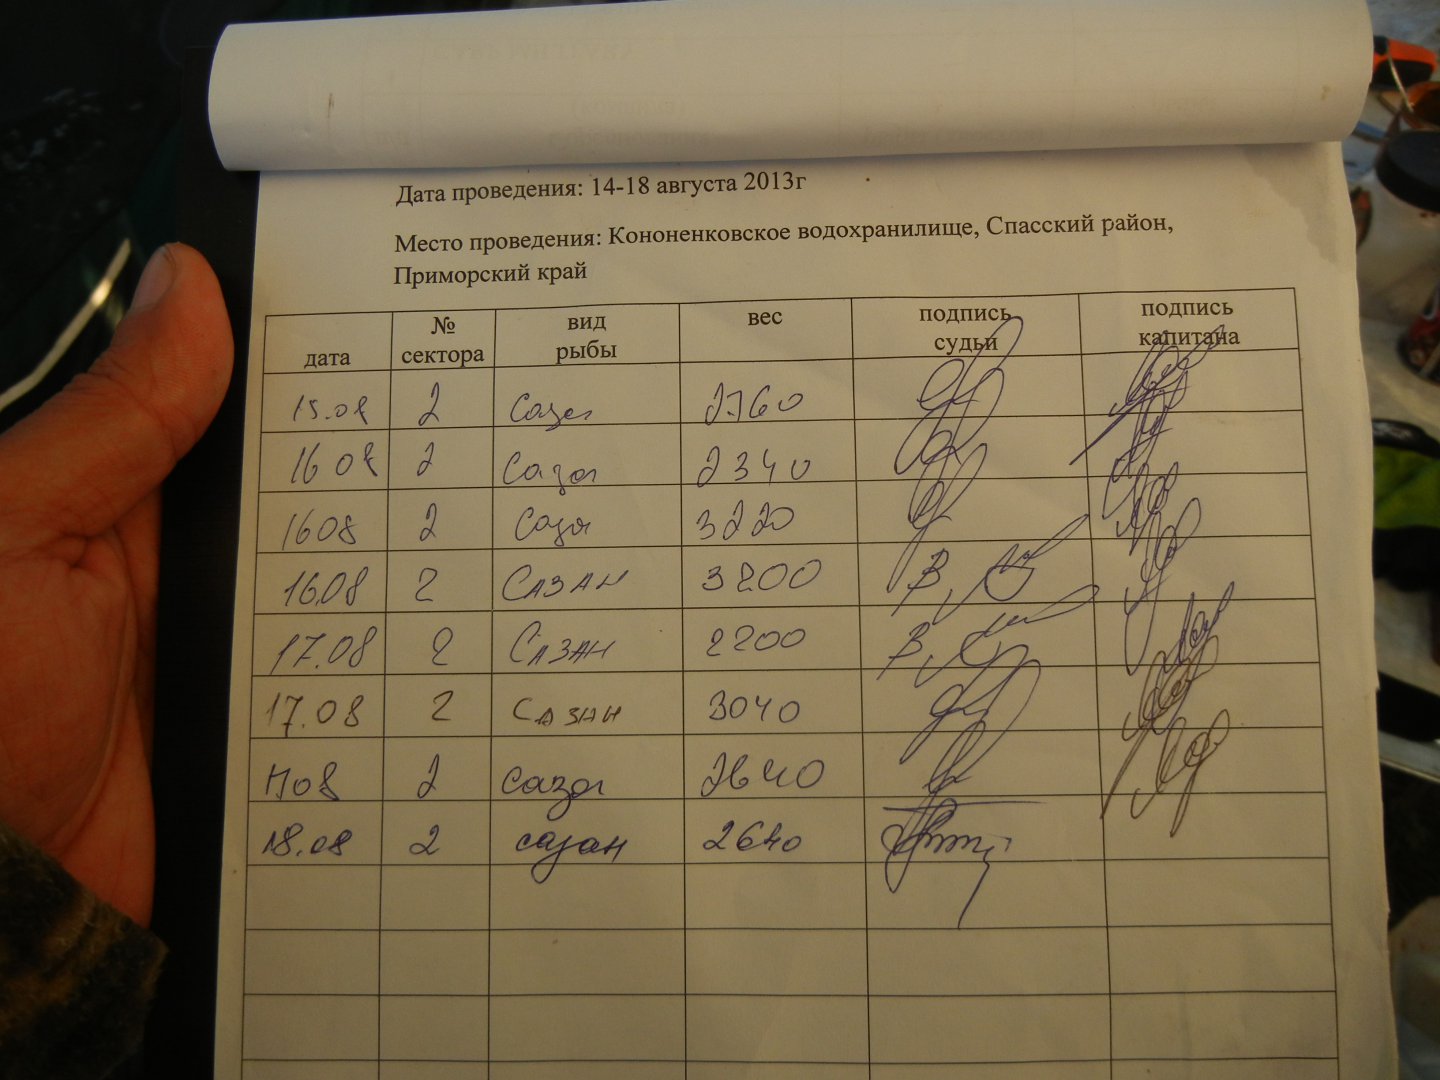 Дата проведения: 14-18 августа 2013г
Место проведения: Кононенковское водохранилище, Спасский район,
Приморский край
дата № сектора вид рыбы вес подпись судьи подпись капитана
15.08 2 Сазан 2760
16 08 2 Сазан 2340
16 08 2 Сазан 3220
16.08 2 САЗАН 3200
17.08 2 САЗАН 2200
17.08 2 САЗАН 3040
17 08 2 сазан 2640
18.08 2 сазан 2640